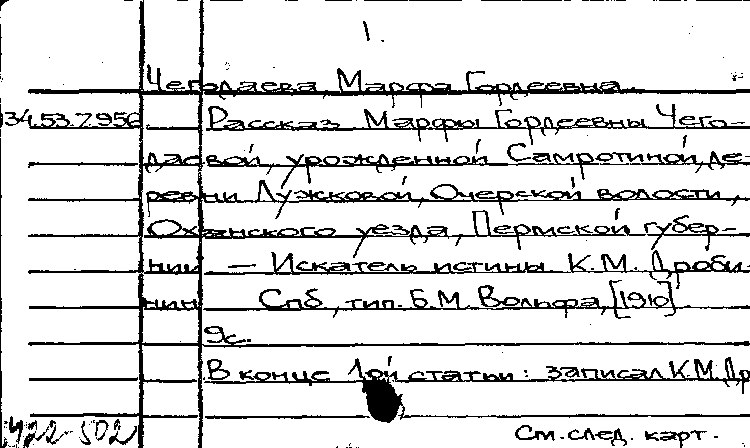 1.
Чегодаева, Марфа Гордеевна.
34.53.7.956 Рассказ Марфы Гордеевны Чего-
даевой, урожденной Самротиной, де-
ревни Лужковой, Очерской волости,
Оханского уезда, Пермской губер-
нии — Искатель истины К.М. Дроби-
нин Спб, тип. Б.М. Вольфа, [1910].
9с.
В конце 1ой статьи: записал К.М. Др
У22-502
См. след. карт.